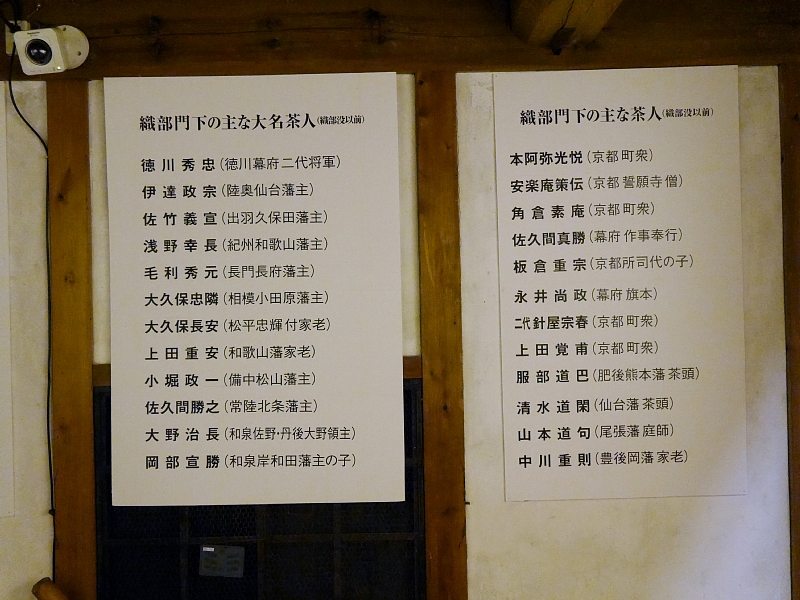 織部門下の主な大名茶人(織部没以前)
徳川秀忠(徳川幕府二代将軍)
伊達政宗(陸奥仙台藩主)
佐竹義宣(出羽久保田藩主)
浅野幸長(紀州和歌山藩主)
毛利秀元(長門長府藩主)
大久保忠隣(相模小田原藩主)
大久保長安(松平忠輝付家老)
上田重安(和歌山藩家老)
小堀政一(備中松山藩主)
佐久間勝之(常陸北条藩主)
大野治長(和泉佐野・丹後大野領主)
岡部宣勝(和泉岸和田藩主の子)
織部門下の主な茶人(織部没以前)
本阿弥光悦(京都町衆)
安楽庵策伝(京都誓願寺僧)
角倉素庵(京都町衆)
佐久間真勝(幕府作事奉行)
板倉重宗(京都所司代の子)
永井尚政(幕府旗本)
二代針屋宗春(京都町衆)
上田覚甫(京都町衆)
服部道巴(肥後熊本藩茶頭)
清水道閑(仙台藩茶頭)
山本道句(尾張藩庭師)
中川重則(豊後岡藩家老)